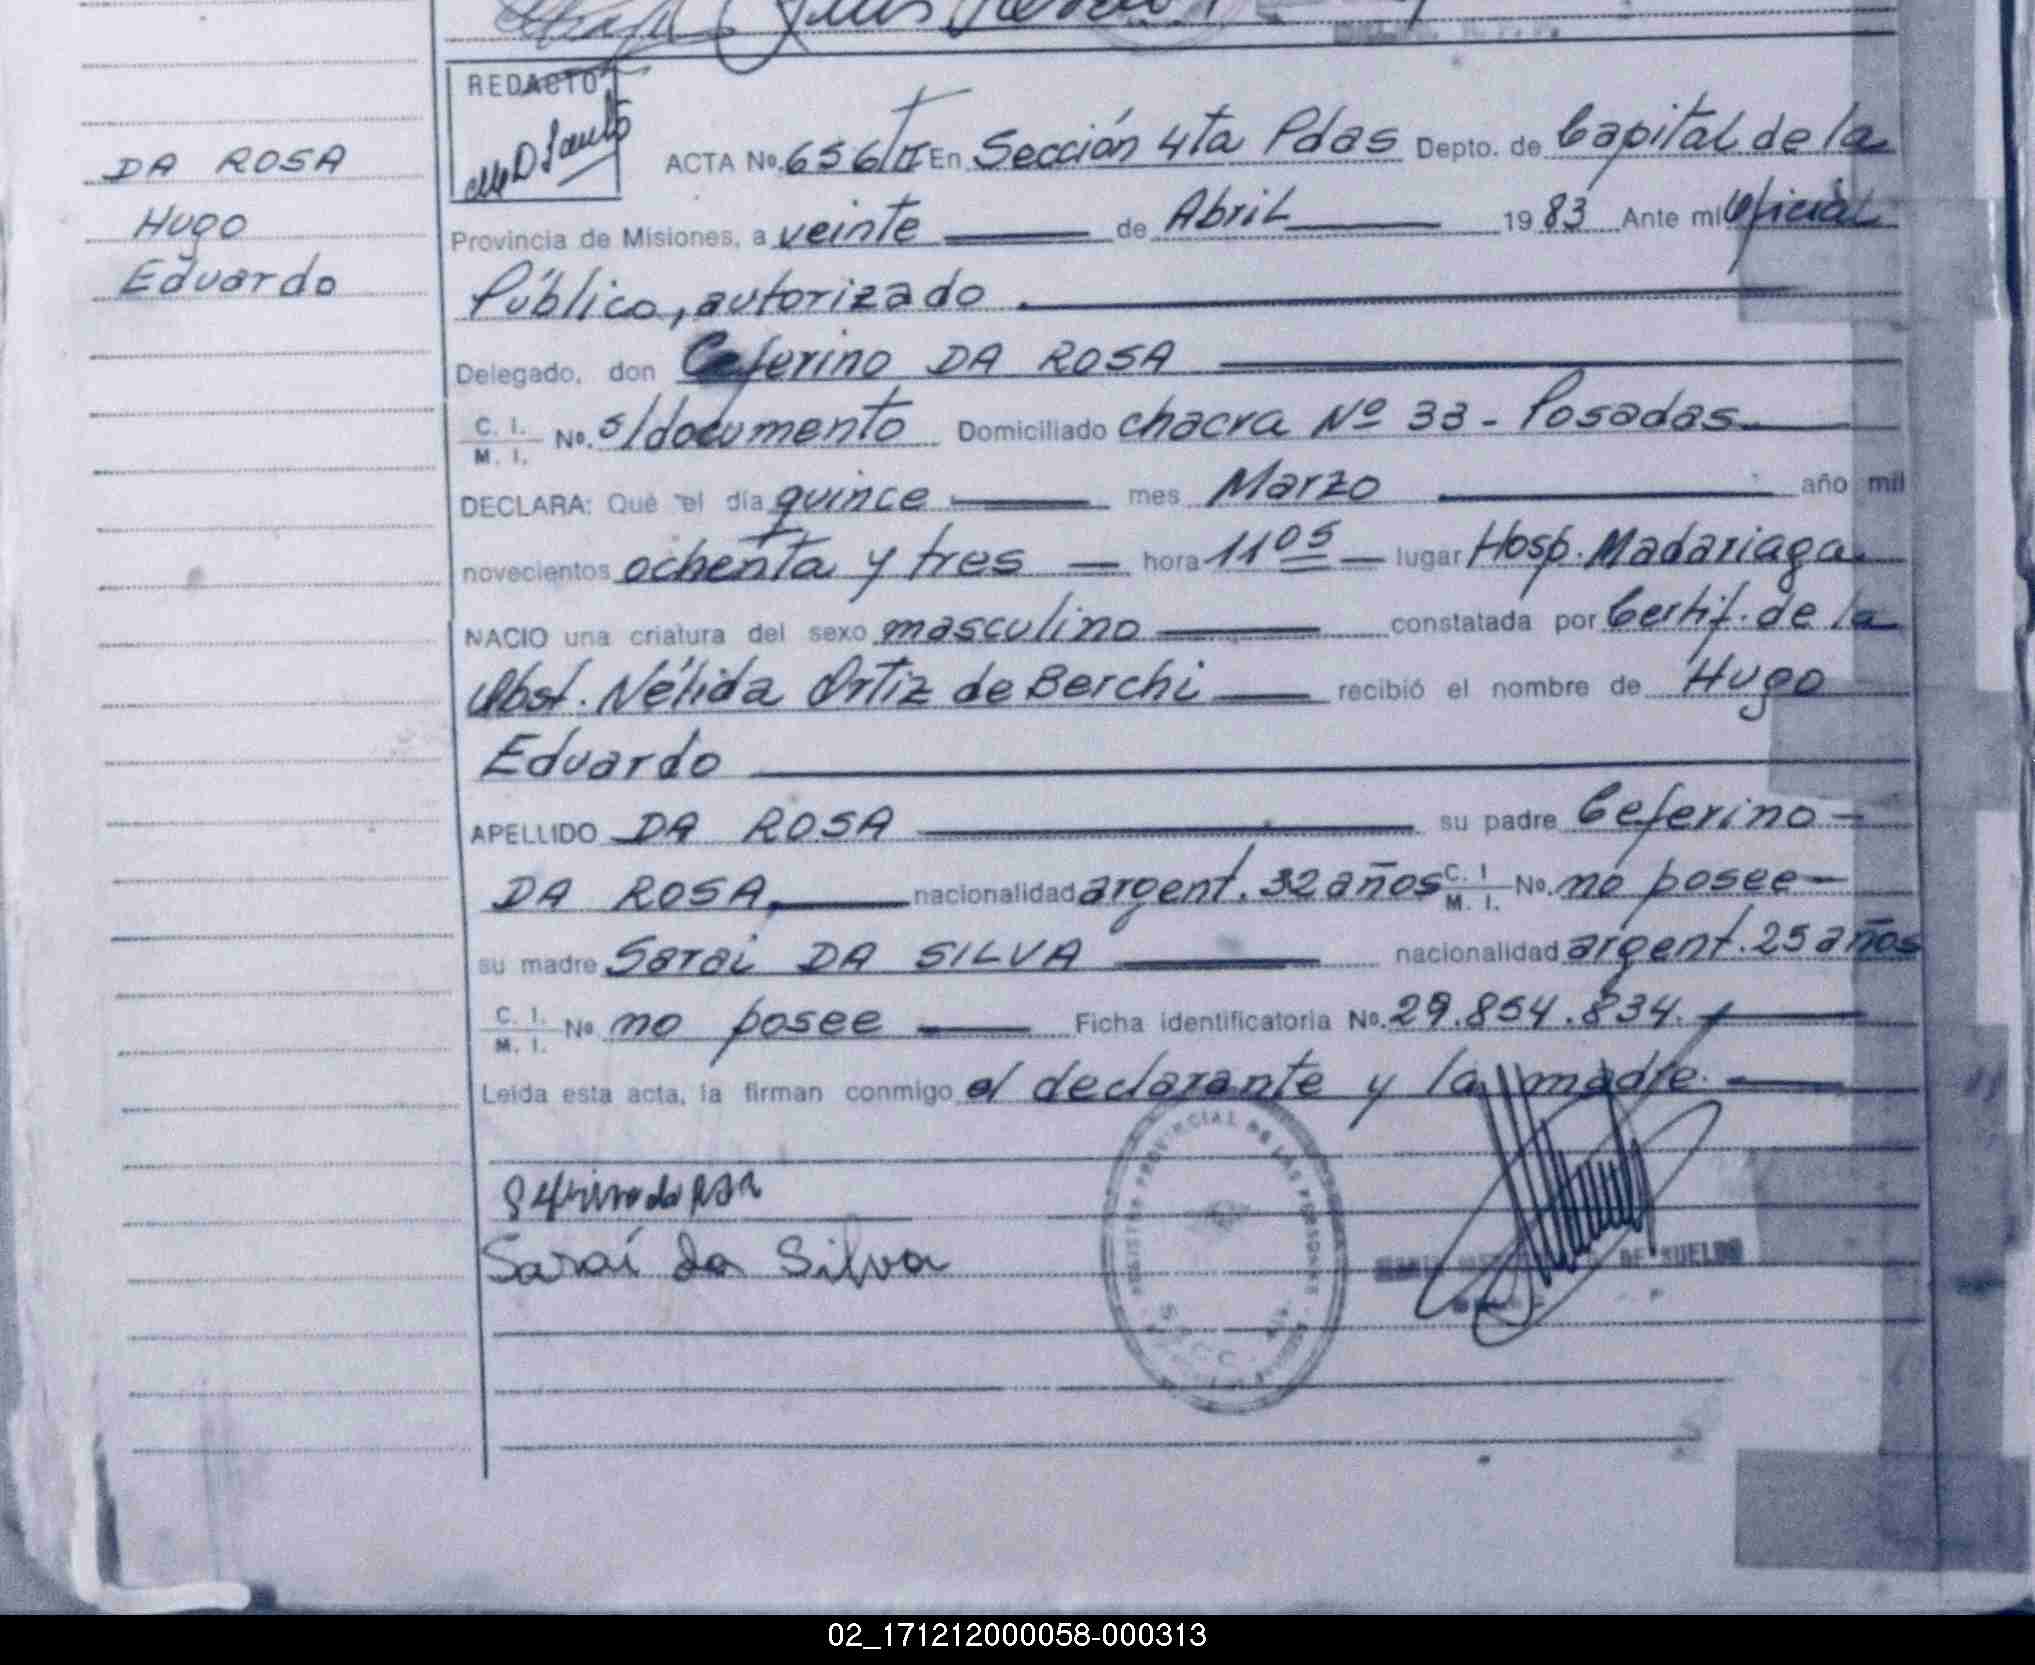 REDACTO
DA ROSA
Hugo
Eduardo
ACTA No. 656/II En Sección 4ta Pdas Depto. de Capital de la
Provincia de Misiones, a veinte de Abril 1983 Ante mi Oficial
Público, autorizado.
Delegado, don Ceferino DA ROSA
C. I. / M. I. No. s/documento Domiciliado chacra Nº 33 - Posadas
DECLARA: Que el día quince mes Marzo año mil
novecientos ochenta y tres hora 11 05 lugar Hosp. Madariaga.
NACIO una criatura del sexo masculino constatada por Certif. de la
Obst. Nélida Ortiz de Berchi recibió el nombre de Hugo
Eduardo
APELLIDO DA ROSA su padre Ceferino
DA ROSA, nacionalidad argent. 32 años C. I / M. I. No. no posee
su madre Sarai DA SILVA nacionalidad argent. 25 años
C. I. / M. I. No. no posee Ficha identificatoria No. 29.854.834.
Leida esta acta, la firman conmigo el declarante y la madre.
REGISTRO PROVINCIAL DE LAS PERSONAS
Saraí da Silva
DE SUELDO
02_171212000058-000313